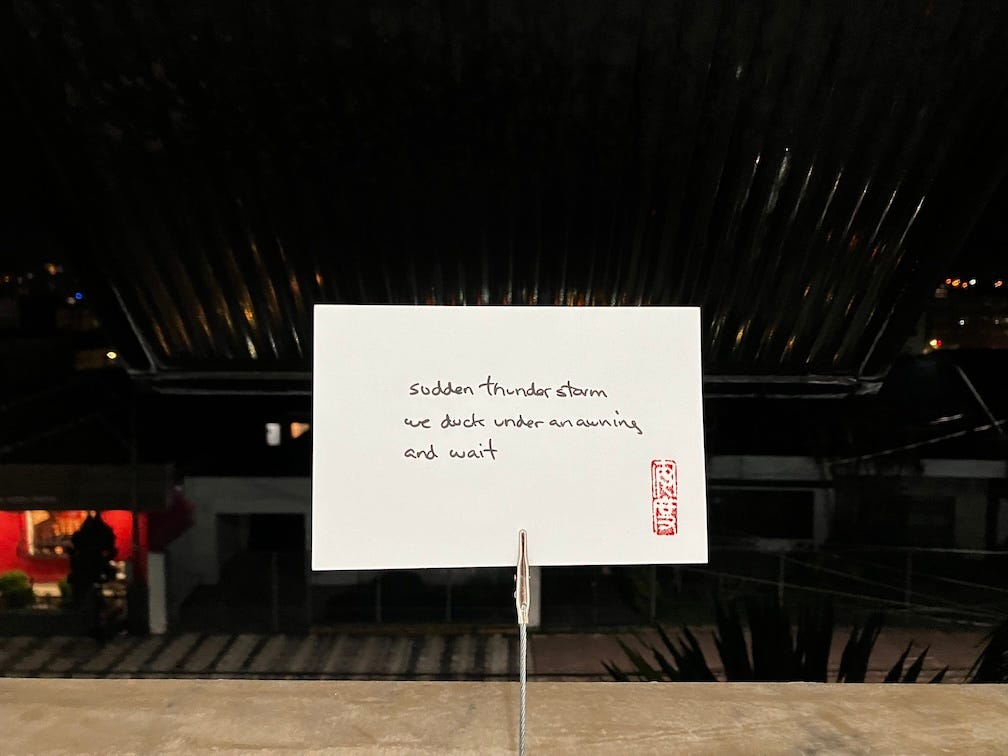 sudden thunder storm
we duck under an awning
and wait